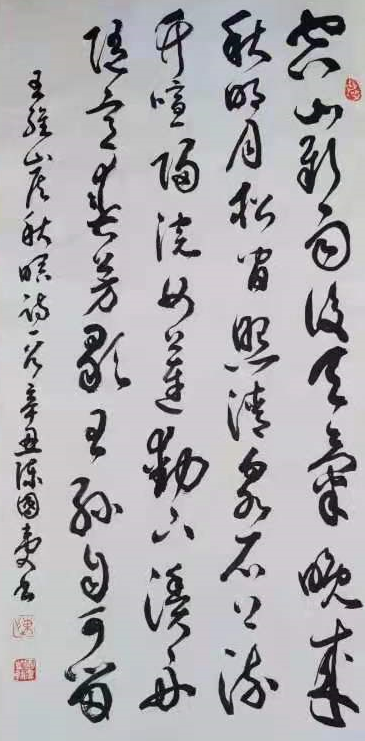 空山新雨後天氣晚來
秋明月松間照清泉石上流
竹喧歸浣女蓮動下漁舟
隨意春芳歇王孫自可留
王維山居秋暝詩一首辛丑陳國書